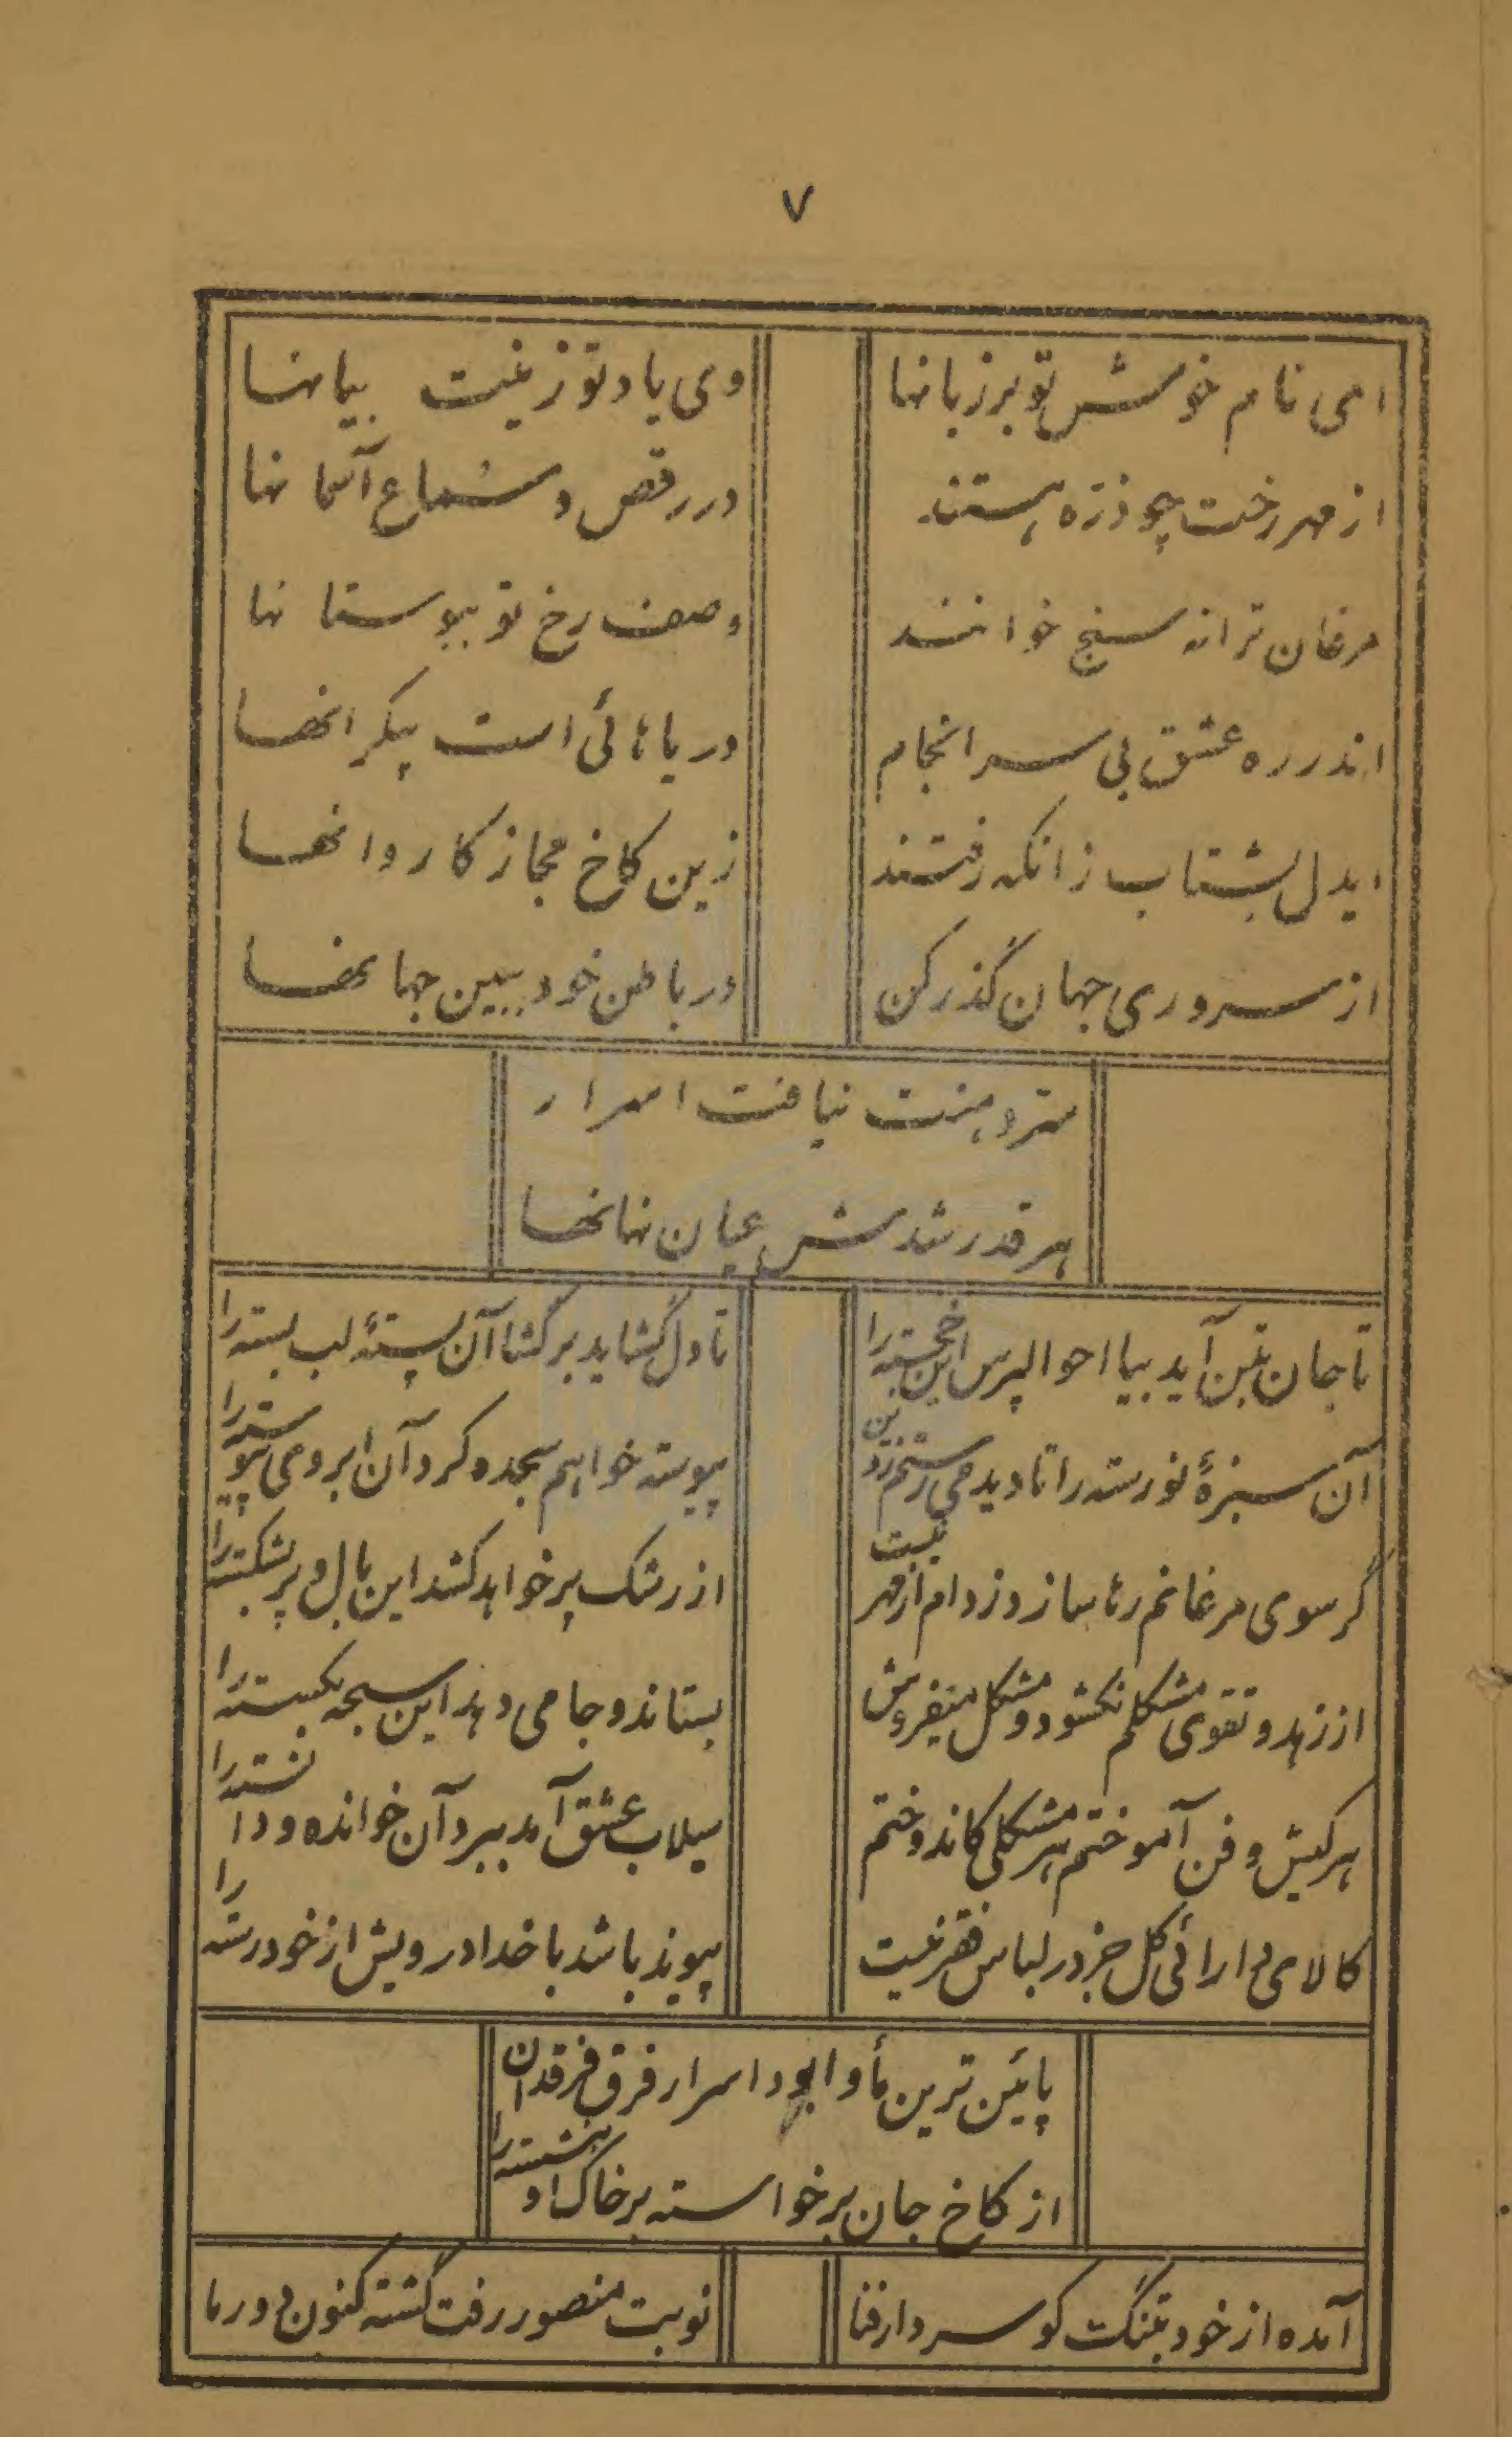 ۷
ای نام خوش تو بر زبانها وی یاد تو زینت بیانها
از مهر رخت چو ذره هستند در رقص و سماع آسمانها
مرغان ترانه سنج خوانند وصف رخ تو ببوستانها
اندر ره عشق بی سرانجام دریاهائی است بیکرانها
ایدل بشتاب زانکه رفتند زین کاخ مجاز کاروانها
از سروری جهان گذر کن در باطن خود ببین جهانها
سر دهنت نیافت اسرار
هر قدر شدش عیان نهانها
تا جان بتن آید بیا احوالپرس این خسته را تا دل گشاید برگشا آن پستهٔ لب بسته را
آن سبزهٔ نورسته را تا دیدمی رستم ز دین پیوسته خواهم سجده کرد آن ابروی پیوسته را
گر سوی مرغانم رها سازد ز دام از مهر نیست از رشک پر خواهد کشد این بال و پر بشکسته را
از زهد و تقوی مشکلم نکشود و مشکل میفروش بستاند و جامی دهد این سبحه بگسسته را
هر کیش و فن آموختم هر مشکلی کاندوختم سیلاب عشق آمد ببرد آن خوانده و دانسته را
کالای دارائی کل جز در لباس فقر نیست پیوند باشد با خدا درویش از خود رسته را
پائین ترین مأوا بود اسرار فرق فرقدان
از کاخ جان برخواسته بر خاک او بنشسته را
آمده از خود بتنگ کو سر دار فنا نوبت منصور رفت گشته کنون دور ما